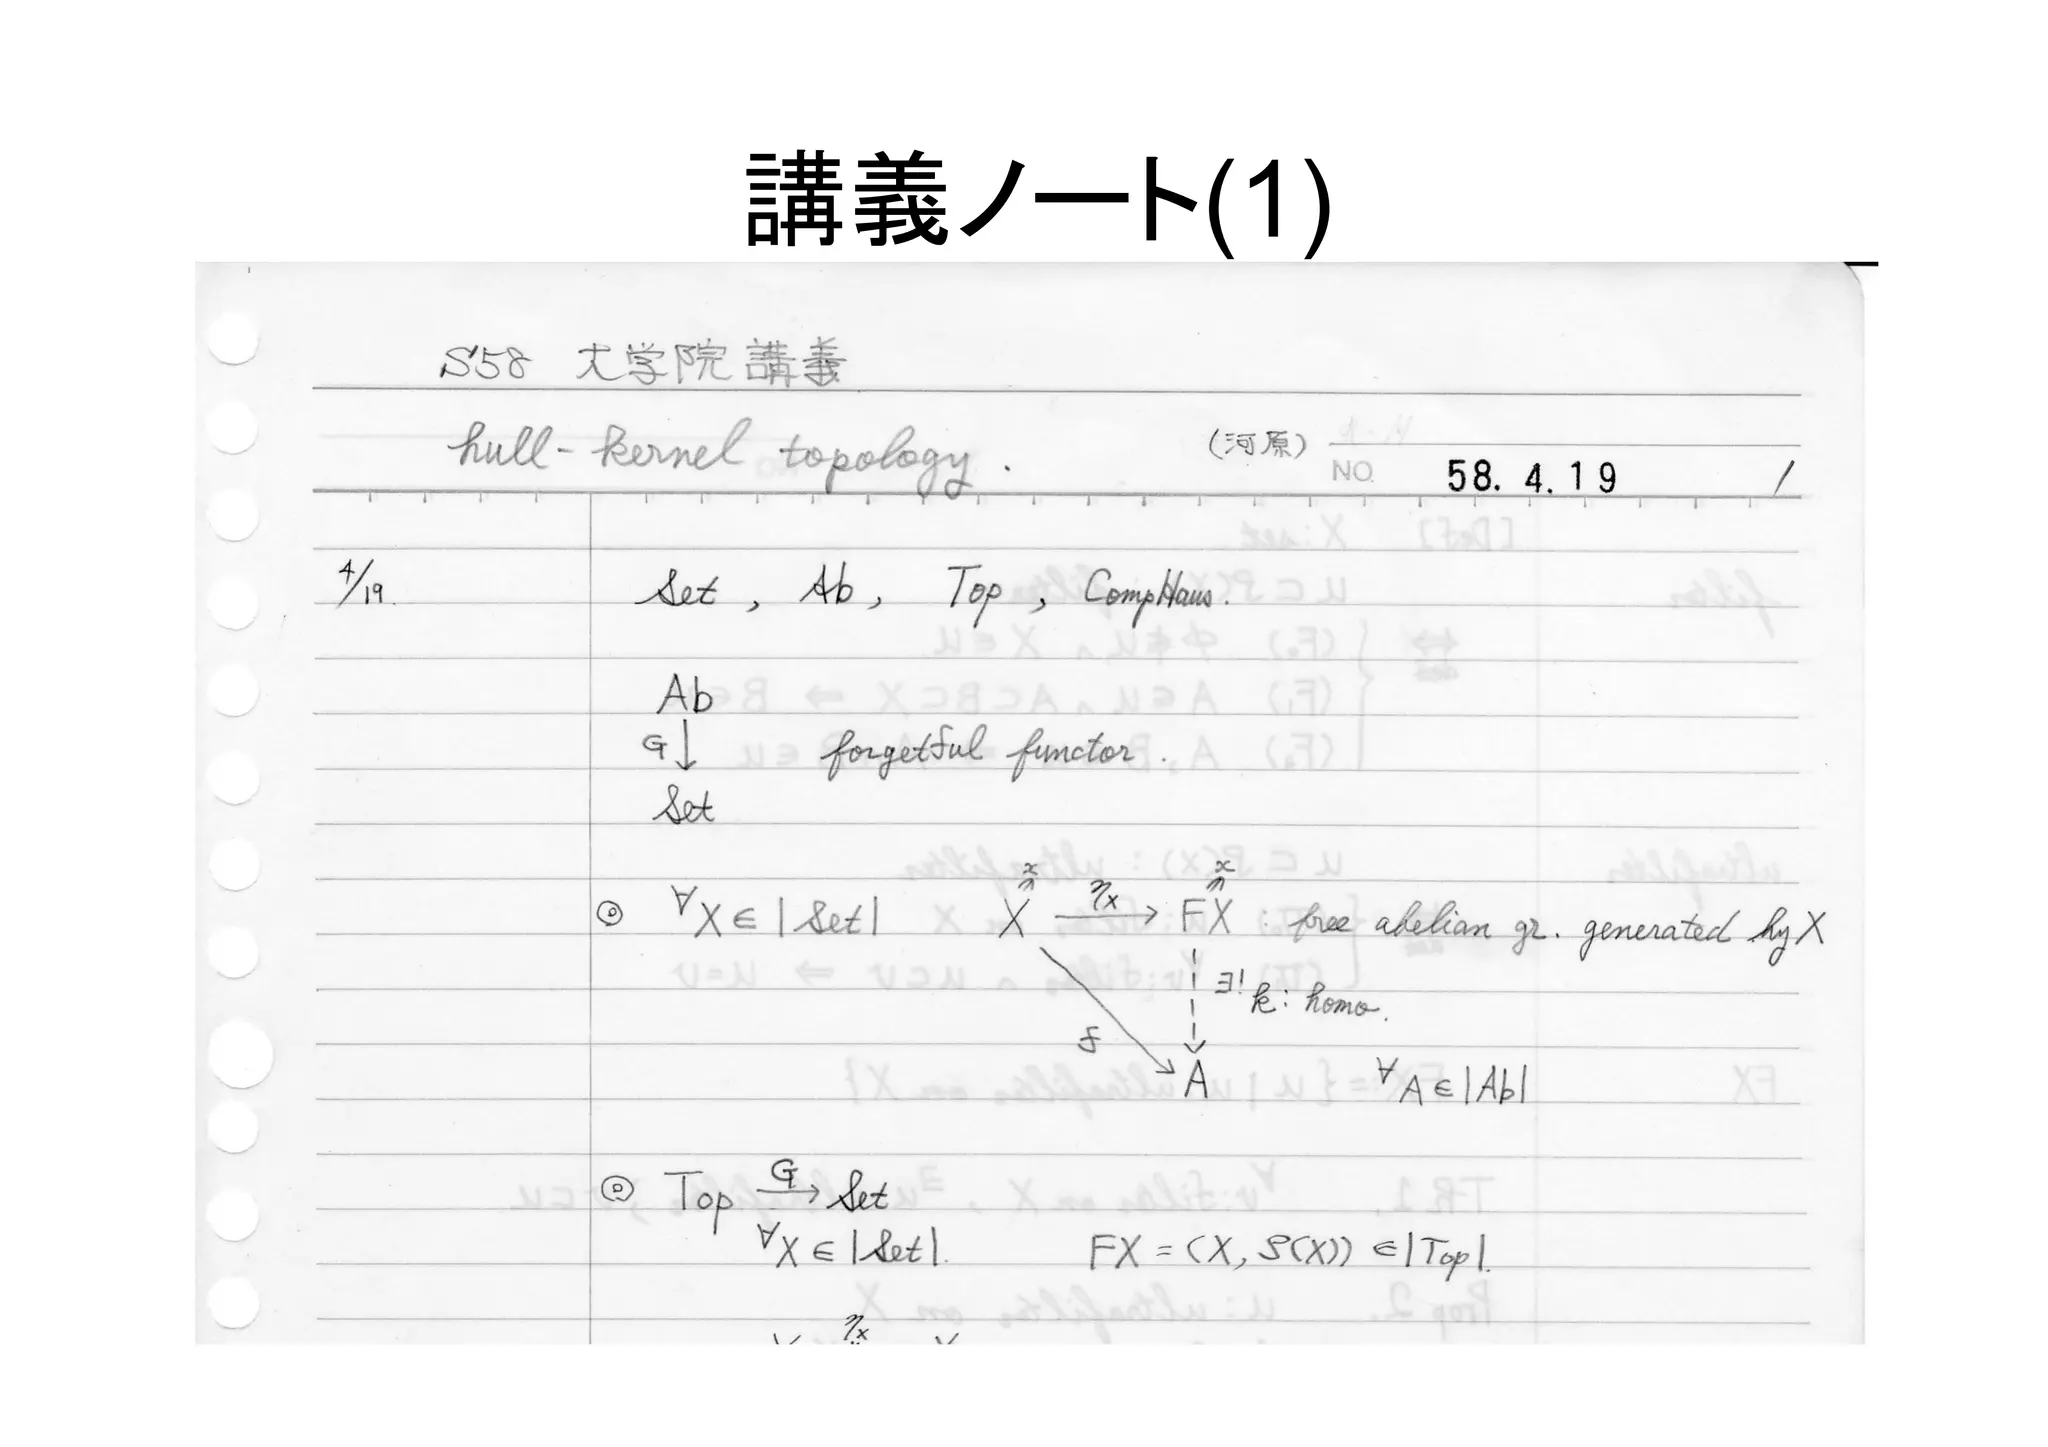 講義ノート(1)
S58 大学院講義
hull-kernel topology.
(河原)
NO. 58.4.19 /
4/19. Set, Ab, Top, CompHaus.
Ab
G↓ forgetful functor.
Set
x x
◎ ∀X∈|Set| X —ηx→ FX : free abelian gr. generated by X
∃! k: homo.
f
A ∀A∈|Ab|
◎ Top —G→ Set
∀X∈|Set|. FX = (X, P(X)) ∈|Top|.
ηx